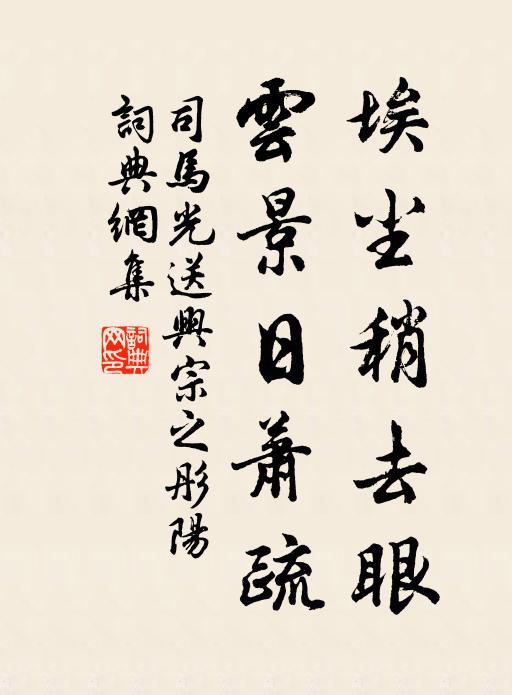 埃尘稍去眼
雲景日蕭疏
司馬光送興宗之彤陽
詞典網集
詞典
网印